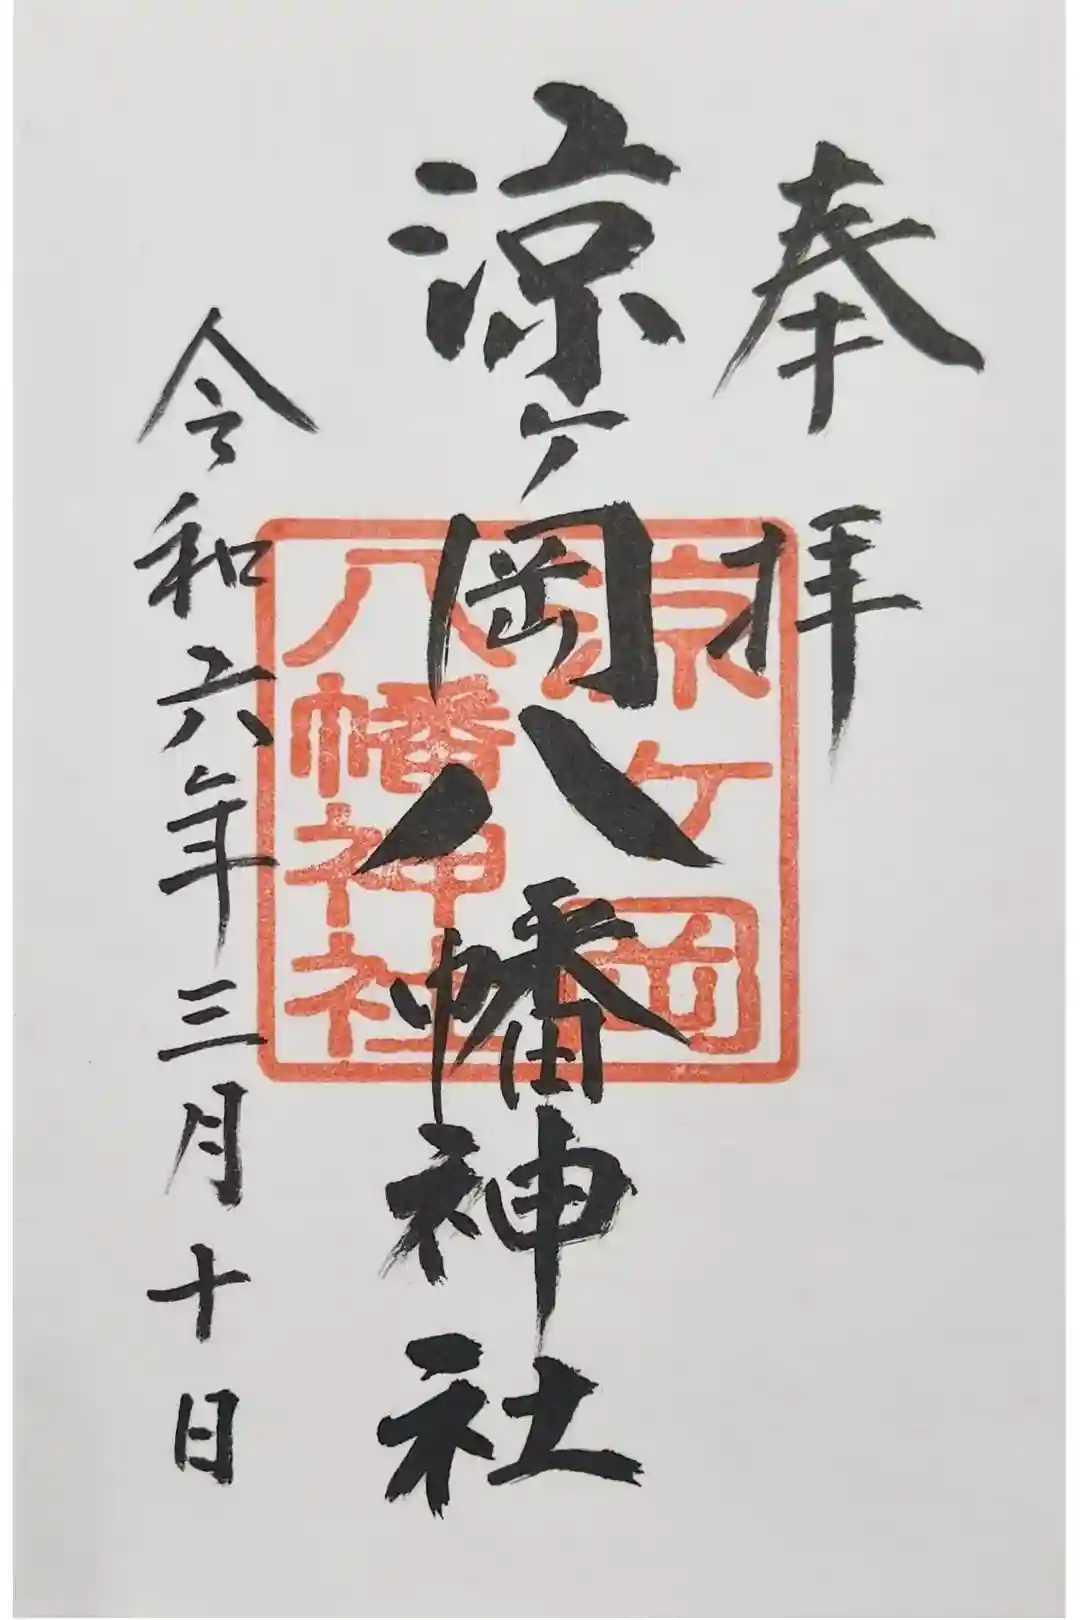 奉拝
涼ケ岡八幡神社
涼ケ岡
八幡神社
令和六年三月十日